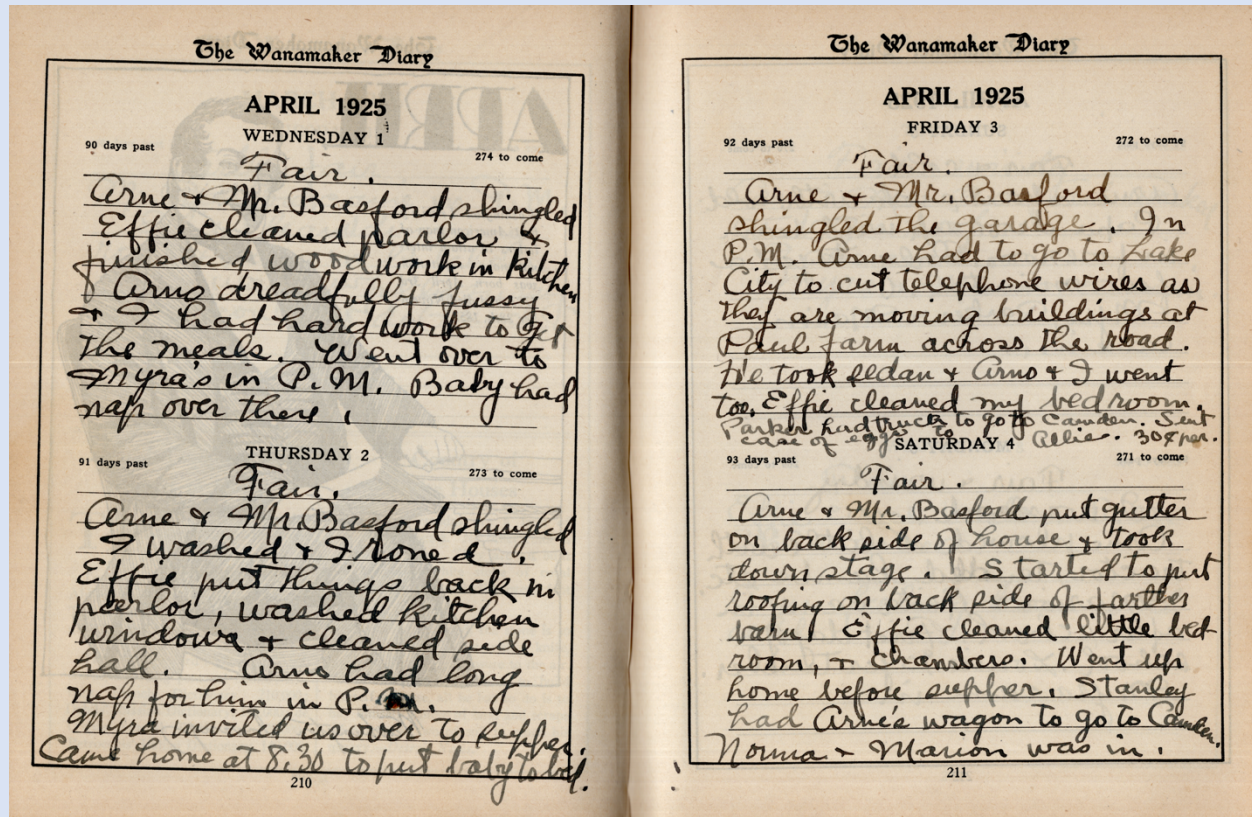 The Wanamaker Diary
APRIL 1925
WEDNESDAY 1
90 days past
274 to come
Fair.
Arne & Mr. Basford shingled
Effie cleaned parlor &
finished woodwork in kitchen
Arno dreadfully fussy
& I had hard work to get
the meals. Went over to
Myra's in P.M. Baby had
nap over there.
THURSDAY 2
91 days past
273 to come
Fair.
Arne & Mr. Basford shingled
I washed & Ironed.
Effie put things back in
parlor, washed kitchen
windows & cleaned side
hall. Arno had long
nap for him in P.M.
Myra invited us over to supper.
Came home at 8.30 to put baby to bed.
210
The Wanamaker Diary
APRIL 1925
FRIDAY 3
92 days past
272 to come
Fair.
Arne & Mr. Basford
shingled the garage. In
P.M. Arne had to go to Lake
City to cut telephone wires as
they are moving buildings at
Paul farm across the road.
He took sedan & Arno & I went
too. Effie cleaned my bedroom.
Parker had truck to go to Camden. Sent
case of eggs to Allie. 30¢ per.
SATURDAY 4
93 days past
271 to come
Fair.
Arne & Mr. Basford put gutter
on back side of house & took
down stage. Started to put
roofing on back side of farther
barn. Effie cleaned little bed
room, & chambers. Went up
home before supper. Stanley
had Arne's wagon to go to Camden.
Norma & Marion was in.
211